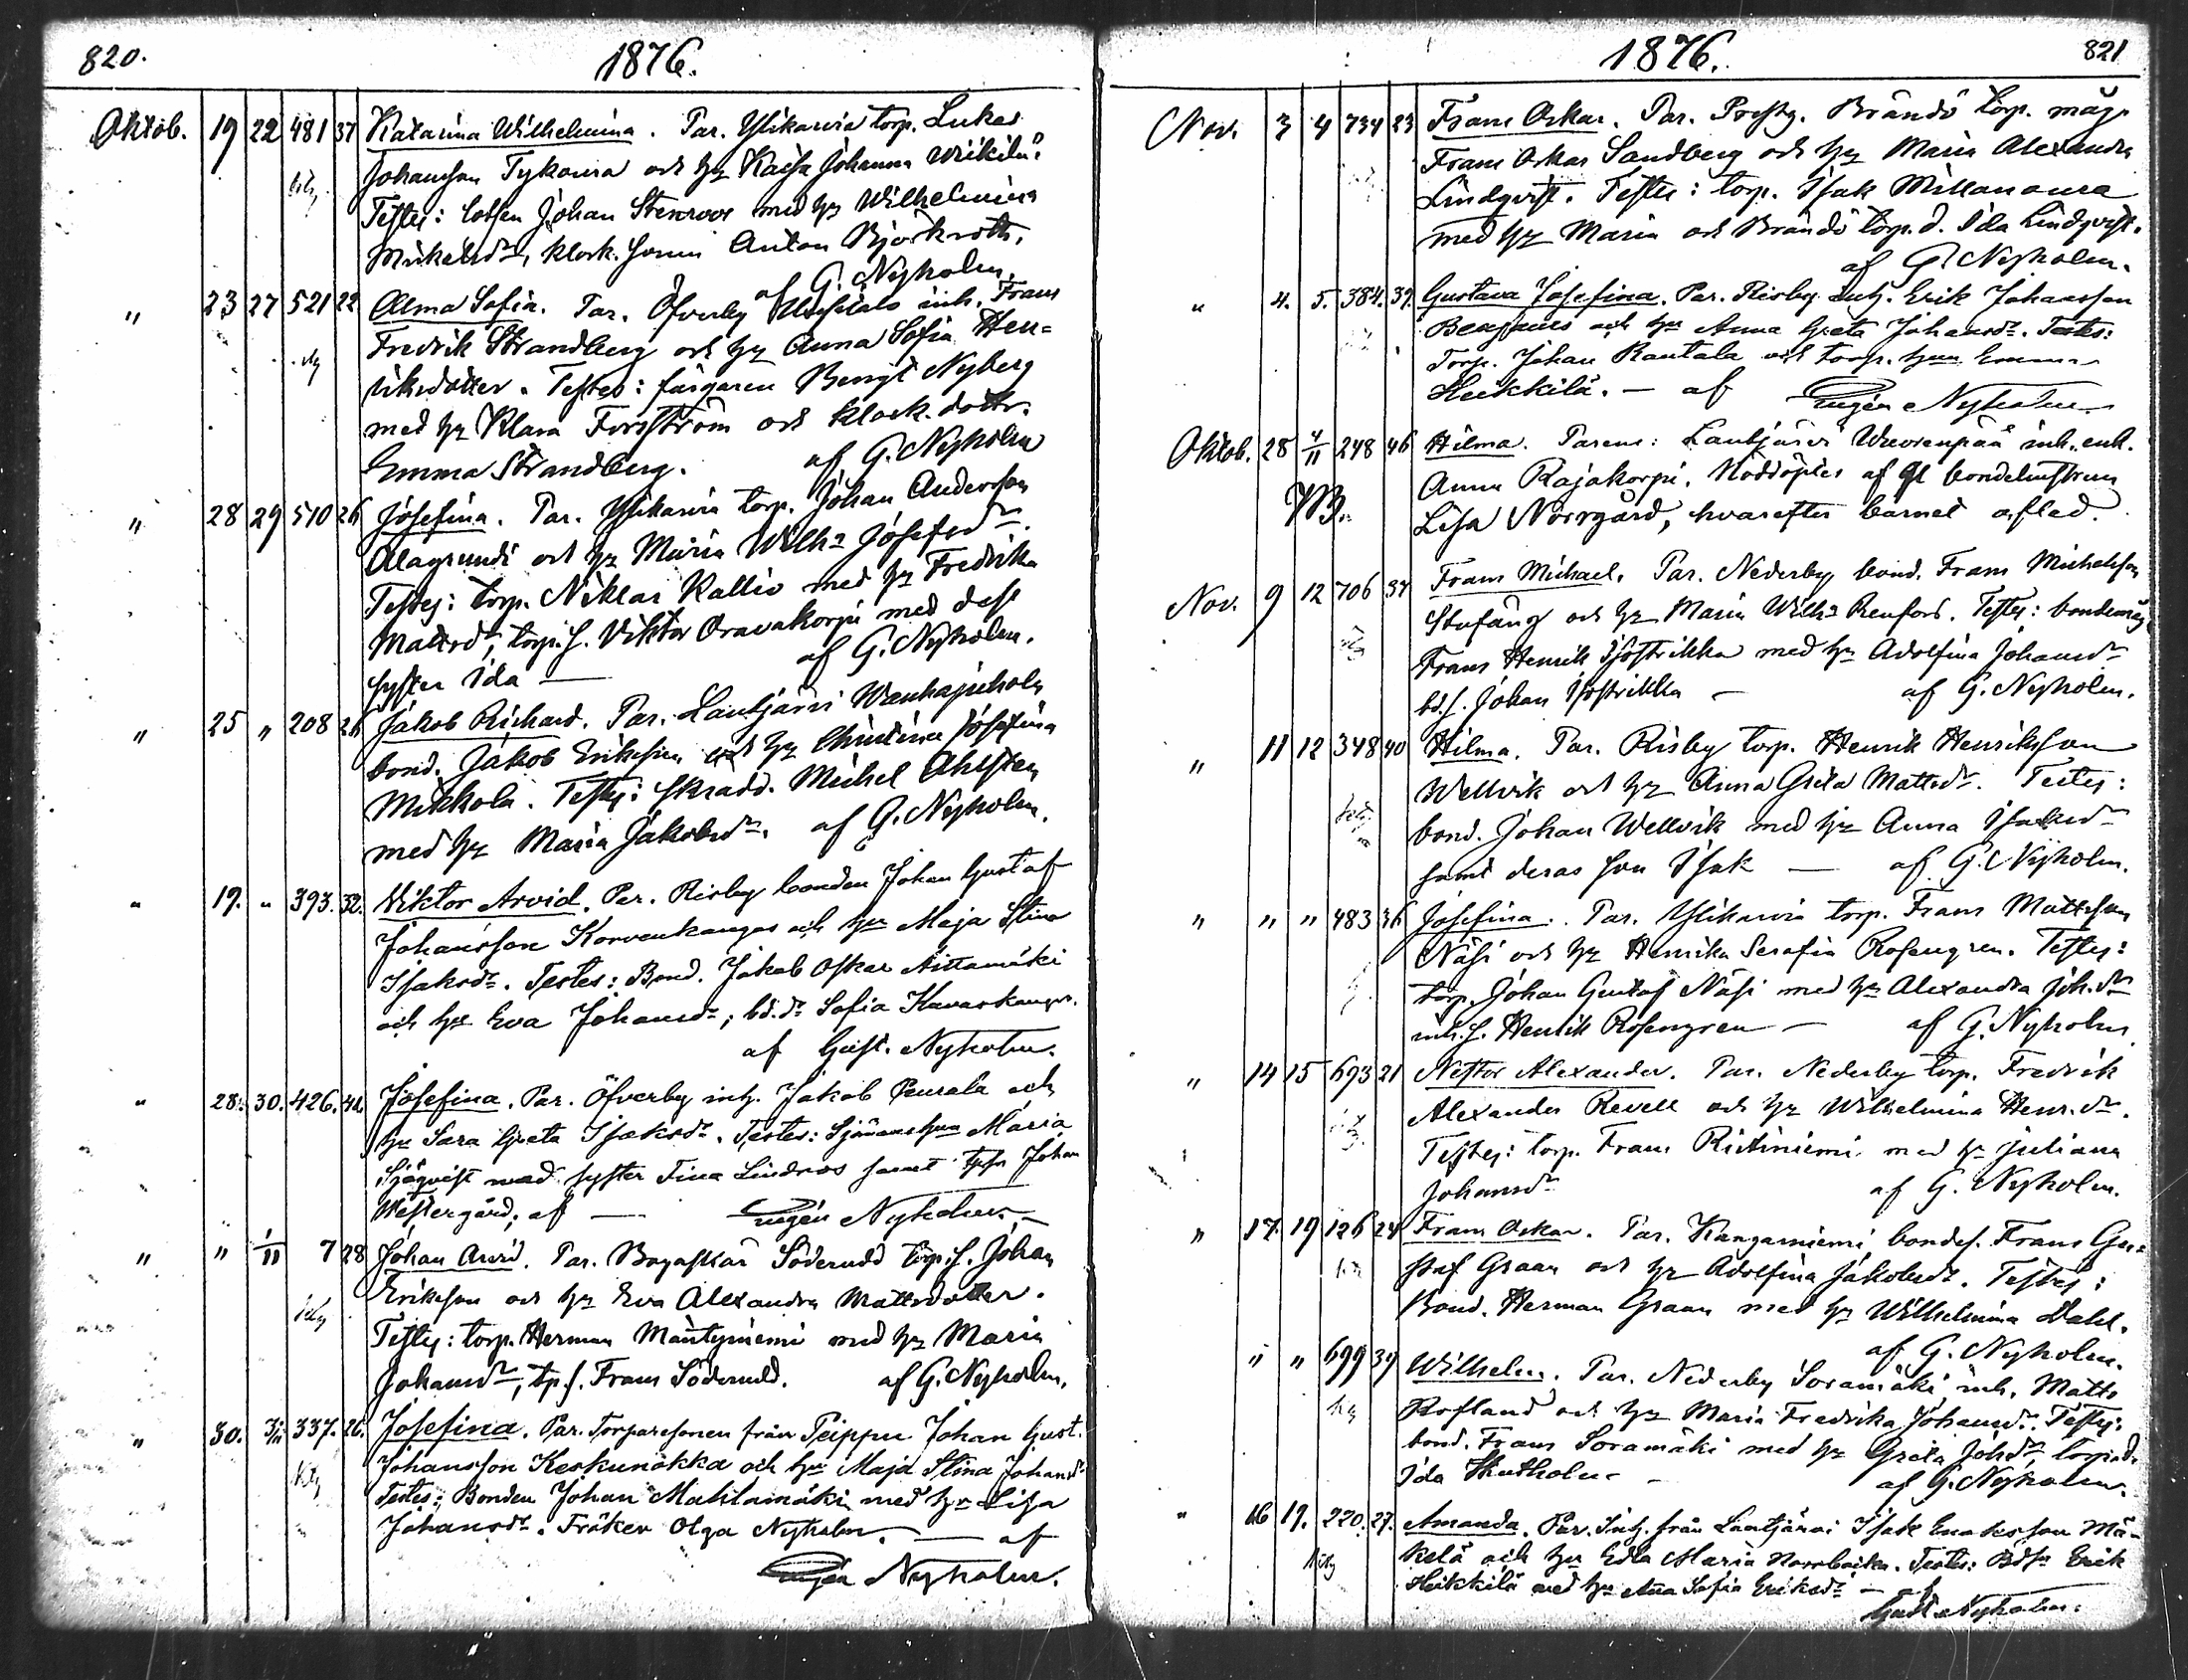 820.
1876.
Oktob. 19 22 481 37 Katarina Wilhelmina. Par. Ylikarvia torp. Lukas
Johansson Tykoura och hr Kaisa Johanna
Testes: lotsen Johan Stenroos med hr Wilhelmina
Mickelsdr, klock. sonen Anton Björkroth.
af G. Nyholm.
" 23 27 521 22 Alma Sofia. Par. Öfverby inh. Frans
Fredrik Strandberg och hr Anna Sofia Hen-
riksdotter. Testes: färgaren Bengt Nyberg
med hr Klara Forsström och klock. dottr.
Emma Strandberg. af G. Nyholm
" 28 29 510 26 Josefina. Par. Ylikarvia torp. Johan Andersson
Alagrundi och hr Maria Wilh:a Josefsdr.
Testes: torp. Niklas Kallio med hr Fredrika
Mattsdr, torp. s. Viktor Oravakorpi med dess
syster Ida — af G. Nyholm.
" 25 " 208 26 Jakob Richard. Par. Lankjärvi Wanhajuhola
bond. Jakob Eriksson och hr Christina Josefina
Mikkola. Testes: skrädd. Michel Ahlsten
med hr Maria Jakobsdr. af G. Nyholm.
" 19. " 393. 32. Viktor Arvid. Par. Risby bonden Johan Gustaf
Johansson Korvenkangas och hr Maja Stina
Isaksdr. Testes: Bond. Jakob Oskar Aittamäki
och hr Eva Johansdr; bd. dr Sofia
af Gust. Nyholm.
" 28. 30. 426. 41. Josefina. Par. Öfverby inh. Jakob Peurala och
hr Sara Greta Isaksdr. Testes: Sjömans hun Maria
Sjöqvist med syster Tina Lindroos samt Johan
Westergård; af — Eugén Nyholm. —
" " 1/11 7 28 Johan Arvid. Par. Bogaskär Söderudd torp. s. Johan
Eriksson och hr Eva Alexandra Mattsdotter.
Testes: torp. Herman Mäntyniemi med hr Maria
Johansdr, tp. s. Frans Söderudd. af G. Nyholm.
" 30. 3/11 337. 26. Josefina. Par. Torparesonen från Peippu Johan Gust.
Johansson Keskunäkka och hr Maja Stina Johansdr
Testes: Bonden Johan Mahlamäki med hr Lisa
Johansdr. Fröken Olga Nyholm. — af
Eugén Nyholm.
1876.
821
Nov. 3 4 734 23 Frans Oskar. Par. Prestg. Brändö torp. måg.
Frans Oskar Sandberg och hr Maria Alexandra
Lindqvist. Testes: torp. Isak
med hr Maria och Brändö torp. d. Ida Lindqvist.
af G. Nyholm.
" 4. 5. 384. 39. Gustava Josefina. Par. Risby inh. Erik Johansson
och hr Anna Greta Johansdr. Testes:
Torp. Johan Rautala och torp. hun Emma
Heikkilä. — af Eugén Nyholm
Oktob. 28 4/11 248 46 Hilma. Parens: Lankjärvi Wuorenpää inh. enk.
NB. Anna Rajakorpi. Nöddöptes af bondehustrun
Lisa Norrgård, hvarefter barnet afled.
Nov. 9 12 706 37 Frans Michael. Par. Nederby bond. Frans Michelsson
Stufäng och hr Maria Wilh:a Renfors. Testes: bondemåg
Frans Henrik med hr Adolfina Johansdr
bd. s. Johan — af G. Nyholm.
" 11 12 348 40 Hilma. Par. Risby torp. Henrik Henriksson
Wellvik och hr Anna Greta Mattsdr. Testes:
bond. Johan Wellvik med hr Anna Isaksdr
samt deras son Isak — af G. Nyholm.
" " " 483 36 Josefina. Par. Ylikarvia torp. Frans Mattsson
Näsi och hr Henrika Serafia Rosengren. Testes:
torp. Johan Gustaf Näsi med hr Alexandra Joh. dr
inh. s. Henrik Rosengren — af G. Nyholm
" 14 15 693 21 Nestor Alexander. Par. Nederby torp. Fredrik
Alexander Revell och hr Wilhelmina Henr. dr.
Testes: torp. Frans Ristiniemi med hr Juliana
Johansdr af G. Nyholm.
" 17. 19 126 24 Frans Oskar. Par. Kangasniemi bondes. Frans Gus-
staf Graan och hr Adolfina Jakobsdr. Testes:
Bond. Herman Graan med hr Wilhelmina Dahl.
af G. Nyholm.
" " 699 39 Wilhelm. Par. Nederby Soramäki inh. Matts
Rosland och hr Maria Fredrika Johansdr. Testes:
bond. Frans Soramäki med hr Greta Johsdr, torp. d.
Ida — af G. Nyholm.
" 16 19. 220. 27. Amanda. Par. Inh. från Lankjärvi Isak Enoksson Mä-
kelä och hr Edla Maria Norrbacka. Testes: Erik
Heikkilä med hr Anna Sofia Eriksdr — af
Gust. Nyholm.